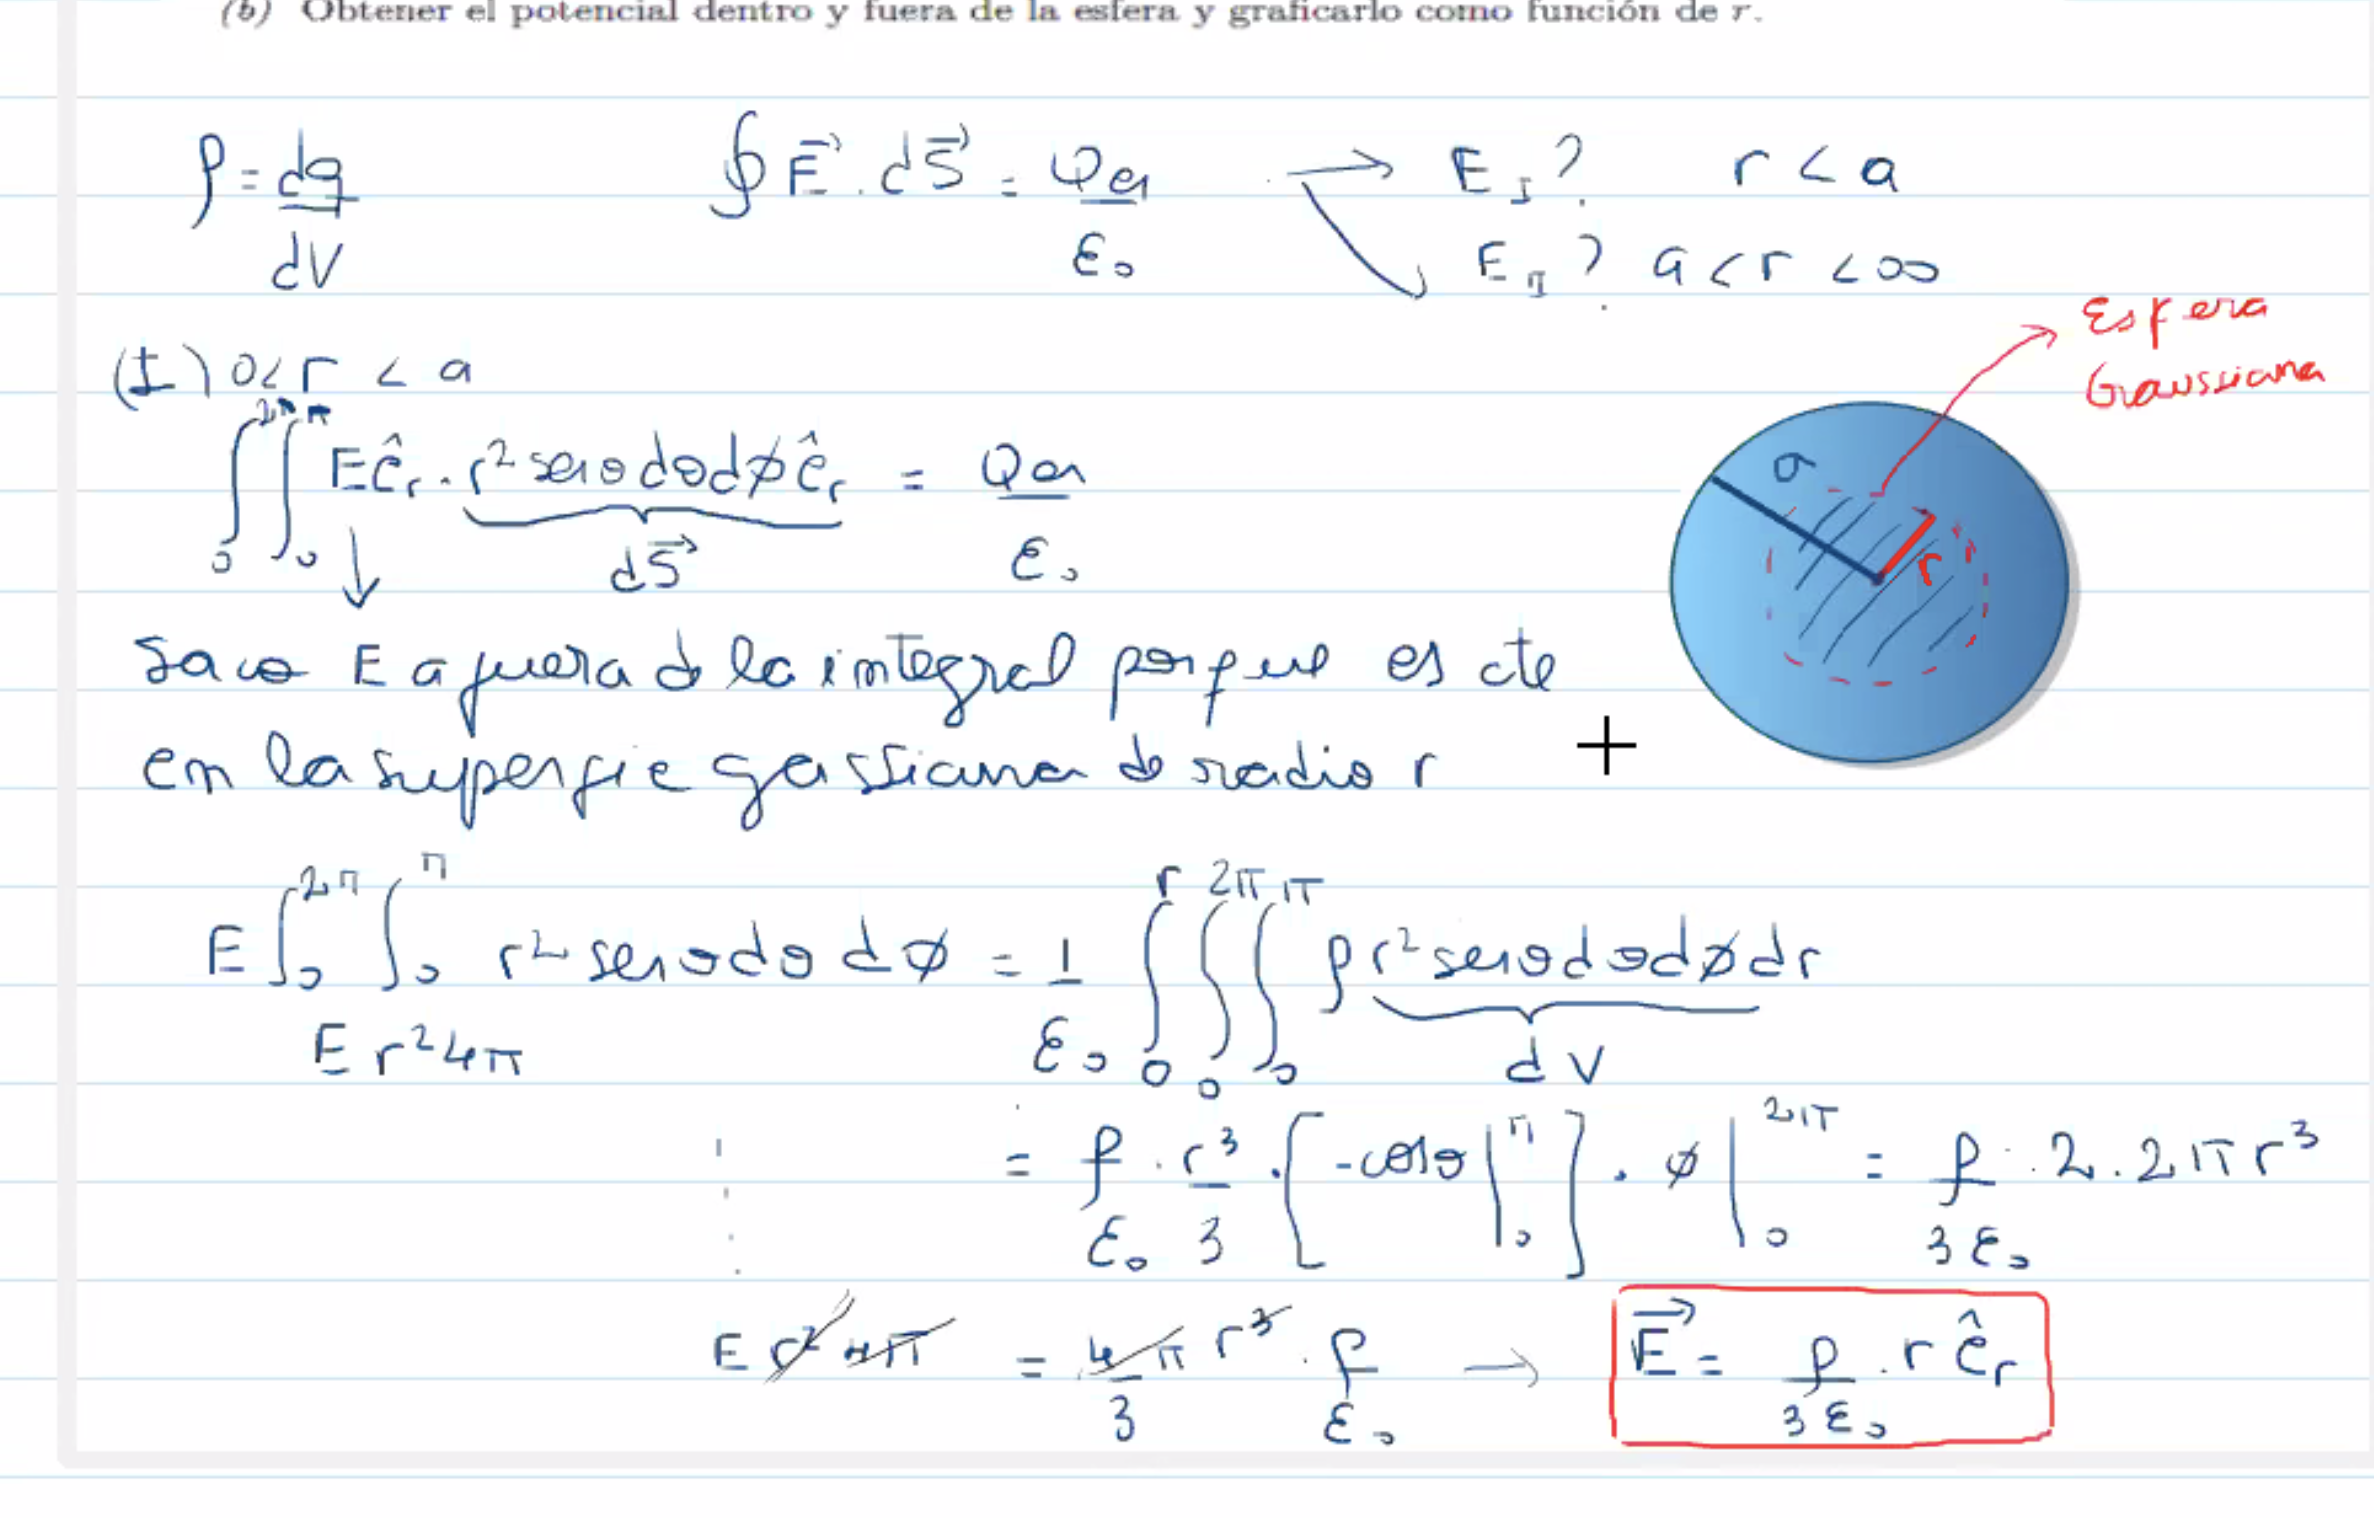 (b) Obtener el potencial dentro y fuera de la esfera y graficarlo como función de r.
ρ = dq/dV    ∮ E⃗ . dS⃗ = Qen/ε₀ → E_I ? r < a
E_II ? a < r < ∞
Esfera
Gaussiana
(I) 0 < r < a
∫₀^2π ∫₀^π E ê_r . r² senθ dθ dφ ê_r = Qen/ε₀
dS⃗
a
r
Saco E a fuera de la integral porque es cte
en la superfie gassiana de radio r
E ∫₀^2π ∫₀^π r² senθ dθ dφ = 1/ε₀ ∫₀^r ∫₀^2π ∫₀^π ρ r² senθ dθ dφ dr
E r² 4π    dV
= ρ/ε₀ . r³/3 . [-cosθ |₀^π] . φ |₀^2π = ρ/3ε₀ . 2 . 2π r³
E r² 4π = 4/3 π r³ . ρ/ε₀ → E⃗ = ρ/3ε₀ . r ê_r